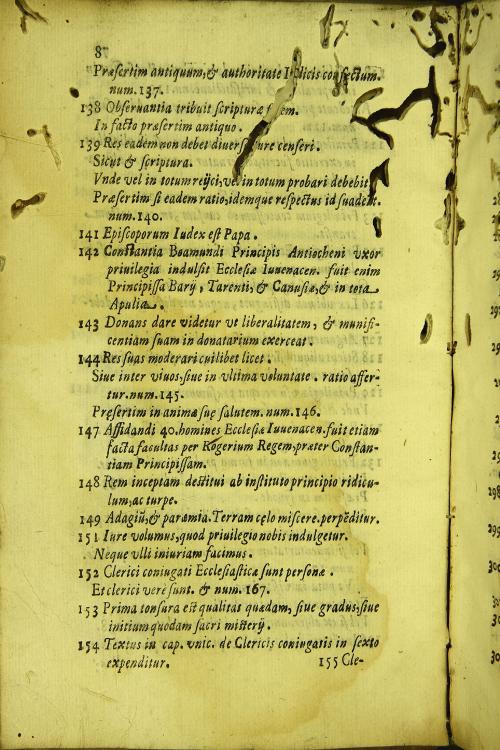 8
Præsertim antiquum, & authoritate Iudicis confectum.
num. 137.
138 Obseruantia tribuit scripturæ fidem.
In facto præsertim antiquo.
139 Res eadem non debet diuerso iure censeri.
Sicut & scriptura.
Vnde vel in totum reijci, vel in totum probari debebit.
Præsertim si eadem ratio, idemque respectus id suadent.
num. 140.
141 Episcoporum Iudex est Papa.
142 Constantia Boamundi Principis Antiocheni vxor
priuilegia indulsit Ecclesiæ Iuuenacen. fuit enim
Principissa Barij, Tarenti, & Canusiæ, & in tota
Apulia.
143 Donans dare videtur vt liberalitatem, & munifi-
centiam suam in donatarium exerceat.
144 Res suas moderari cuilibet licet.
Siue inter viuos, siue in vltima voluntate. ratio affer-
tur. num. 145.
Pręsertim in animæ suę salutem. num. 146.
147 Affidandi 40. homines Ecclesiæ Iuuenacen. fuit etiam
facta facultas per Rogerium Regem, præter Constan-
tiam Principissam.
148 Rem inceptam destitui ab instituto principio ridicu-
lum, ac turpe.
149 Adagiũ, & parœmia. Terram cęlo miscere. perpẽditur.
151 Iure volumus, quod priuilegio nobis indulgetur.
Neque vlli iniuriam facimus.
152 Clerici coniugati Ecclesiasticæ sunt personæ.
Et clerici vere sunt. & num. 167.
153 Prima tonsura est qualitas quædam, siue gradus, siue
initium quodam sacri misterij.
154 Textus in cap. vnic. de Clericis coniugatis in sexto
expenditur.
155 Cle-